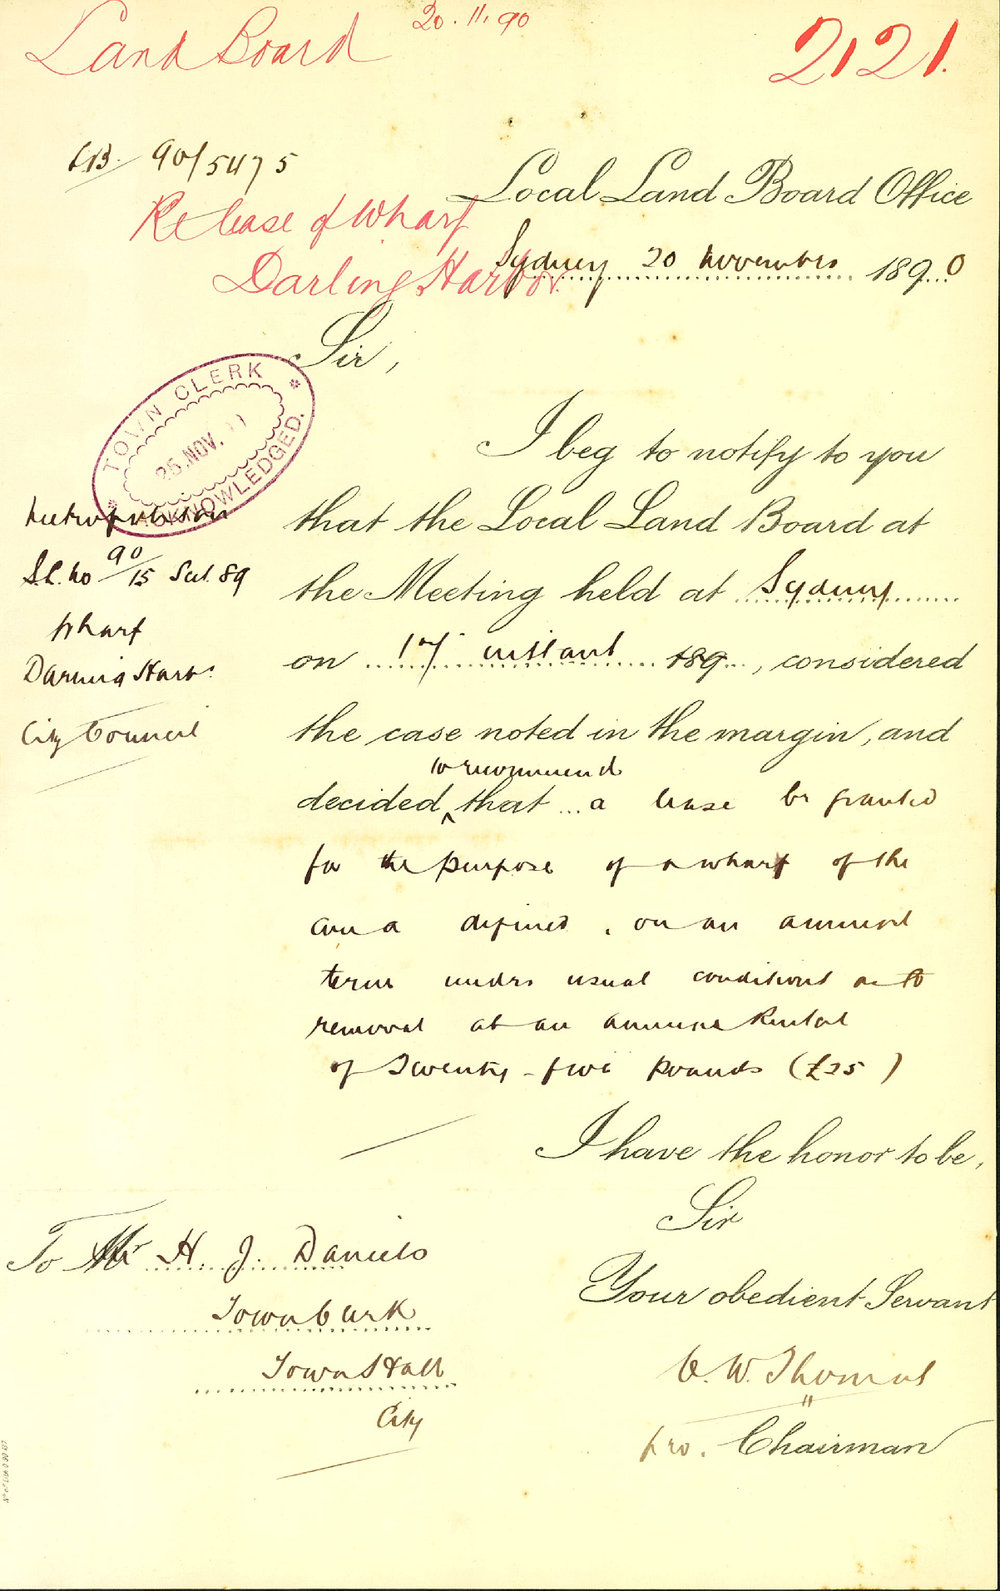 Land Board
20.11.90
2121.
LB. 90/5475
Local Land Board Office
Re lease of Wharf
Darling Harbor
Sydney 20 November 1890
Sir,
TOWN CLERK
25. NOV.
ACKNOWLEDGED.
I beg to notify to you
Metropolitan
that the Local Land Board at
S.L. No 90/15 Sect. 89
the Meeting held at Sydney
Wharf
on 17 instant 189 , considered
Darling Harb.
City Council
the case noted in the margin, and
to recommend
decided that a lease be granted
for the purpose of a wharf of the
area defined, on an annual
term under usual conditions as to
removal at an annual Rental
of Twenty-five pounds (£25)
I have the honor to be,
Sir
Your obedient Servant
To Mr H. J. Daniels
Town Clerk
Town Hall
City
W. Thomas
pro. Chairman